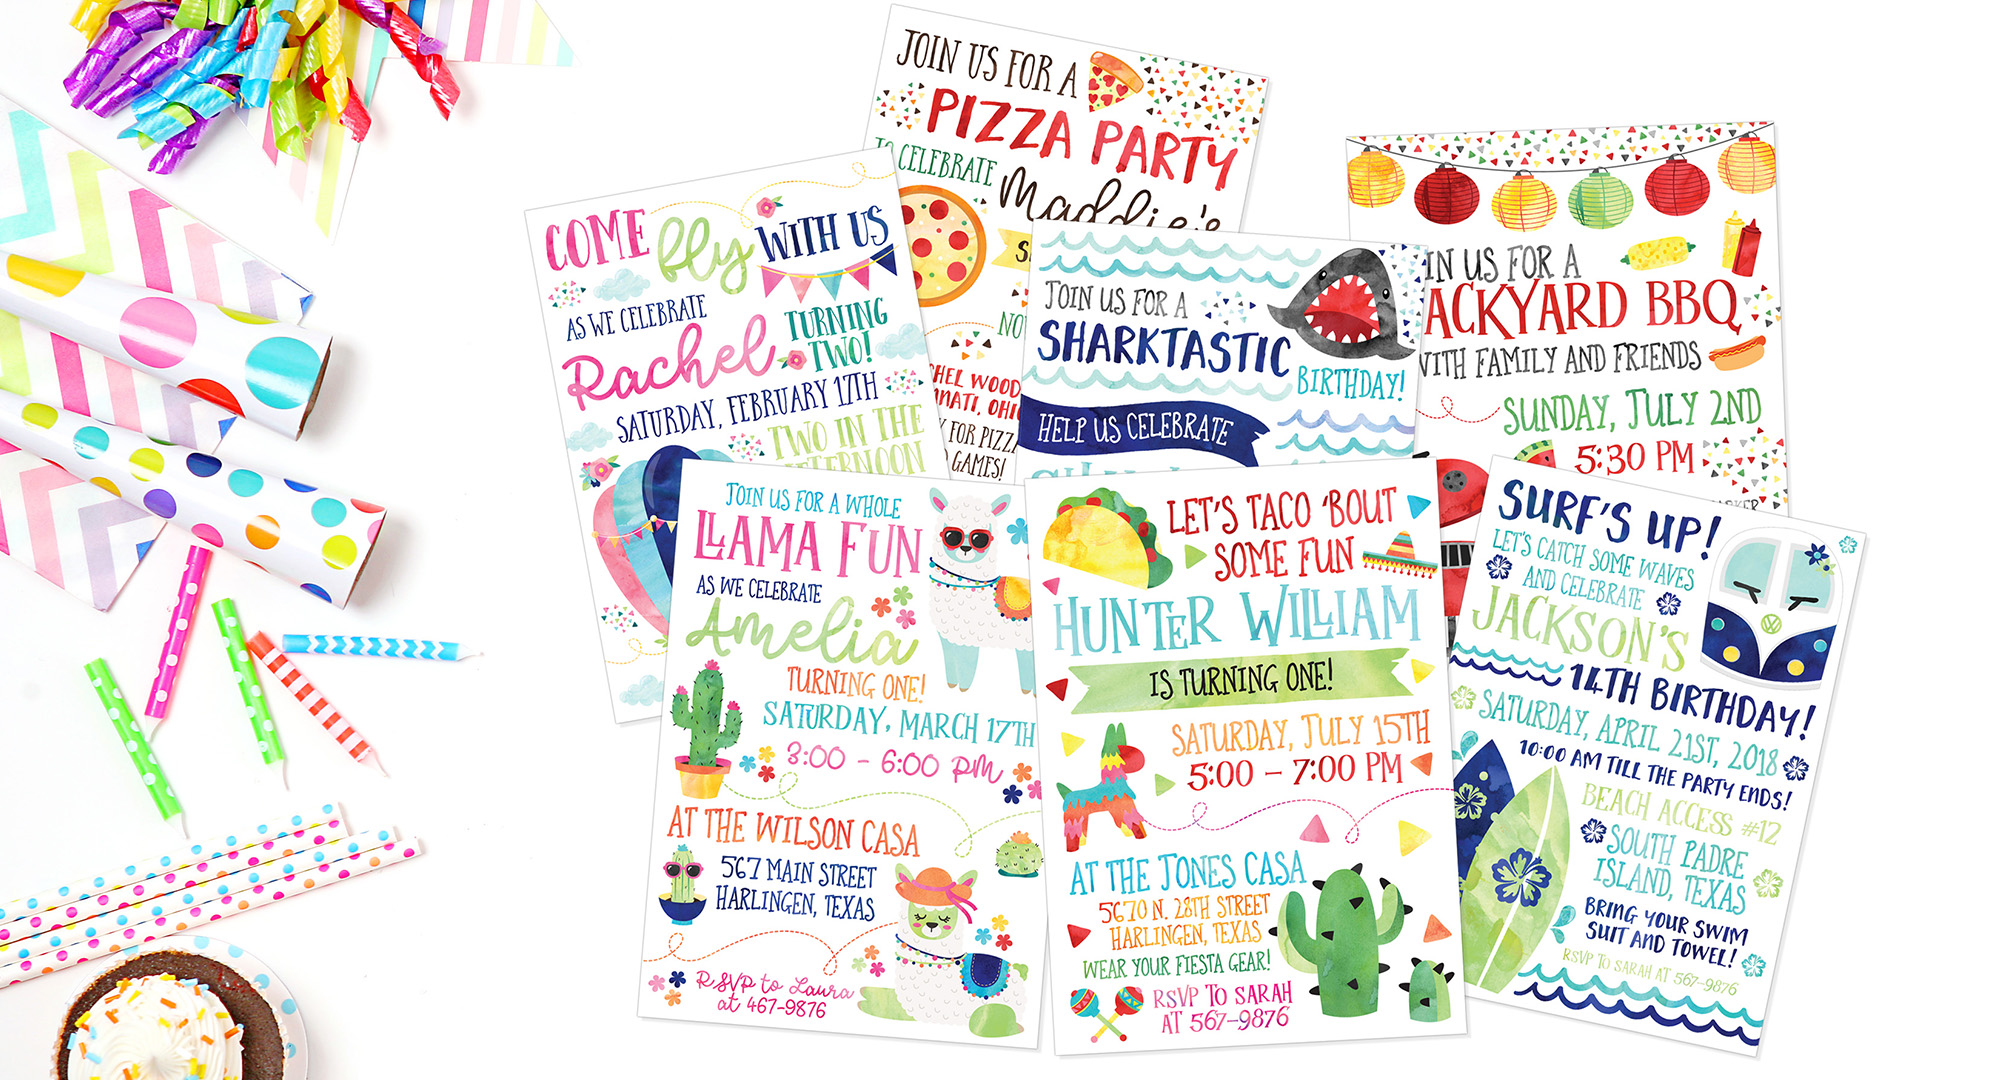 JOIN US FOR A
PIZZA PARTY
TO CELEBRATE
Maddie's
COME fly WITH US
AS WE CELEBRATE
Rachel TURNING
TWO!
SATURDAY, FEBRUARY 17TH
TWO IN THE
AFTERNOON
JOIN US FOR A
SHARKTASTIC
BIRTHDAY!
HELP US CELEBRATE
US FOR A
BBQ
WITH FAMILY AND FRIENDS
SUNDAY, JULY 2ND
5:30 PM
FOR PIZZA
GAMES!
JOIN US FOR A WHOLE
LLAMA FUN
AS WE CELEBRATE
Amelia
TURNING ONE!
SATURDAY, MARCH 17TH
3:00 - 6:00 PM
AT THE WILSON CASA
567 MAIN STREET
HARLINGEN, TEXAS
RSVP to Laura
at 467-9876
LET'S TACO 'BOUT
SOME FUN
HUNTER WILLIAM
IS TURNING ONE!
SATURDAY, JULY 15TH
5:00 - 7:00 PM
AT THE JONES CASA
5670 N. 28TH STREET
HARLINGEN, TEXAS
WEAR YOUR FIESTA GEAR!
RSVP TO SARAH
AT 567-9876
SURF'S UP!
LET'S CATCH SOME WAVES
AND CELEBRATE
JACKSON'S
14TH BIRTHDAY!
SATURDAY, APRIL 21ST, 2018
10:00 AM TILL THE PARTY ENDS!
BEACH ACCESS #12
SOUTH PADRE
ISLAND, TEXAS
BRING YOUR SWIM
SUIT AND TOWEL!
RSVP TO SARAH AT 567-9876